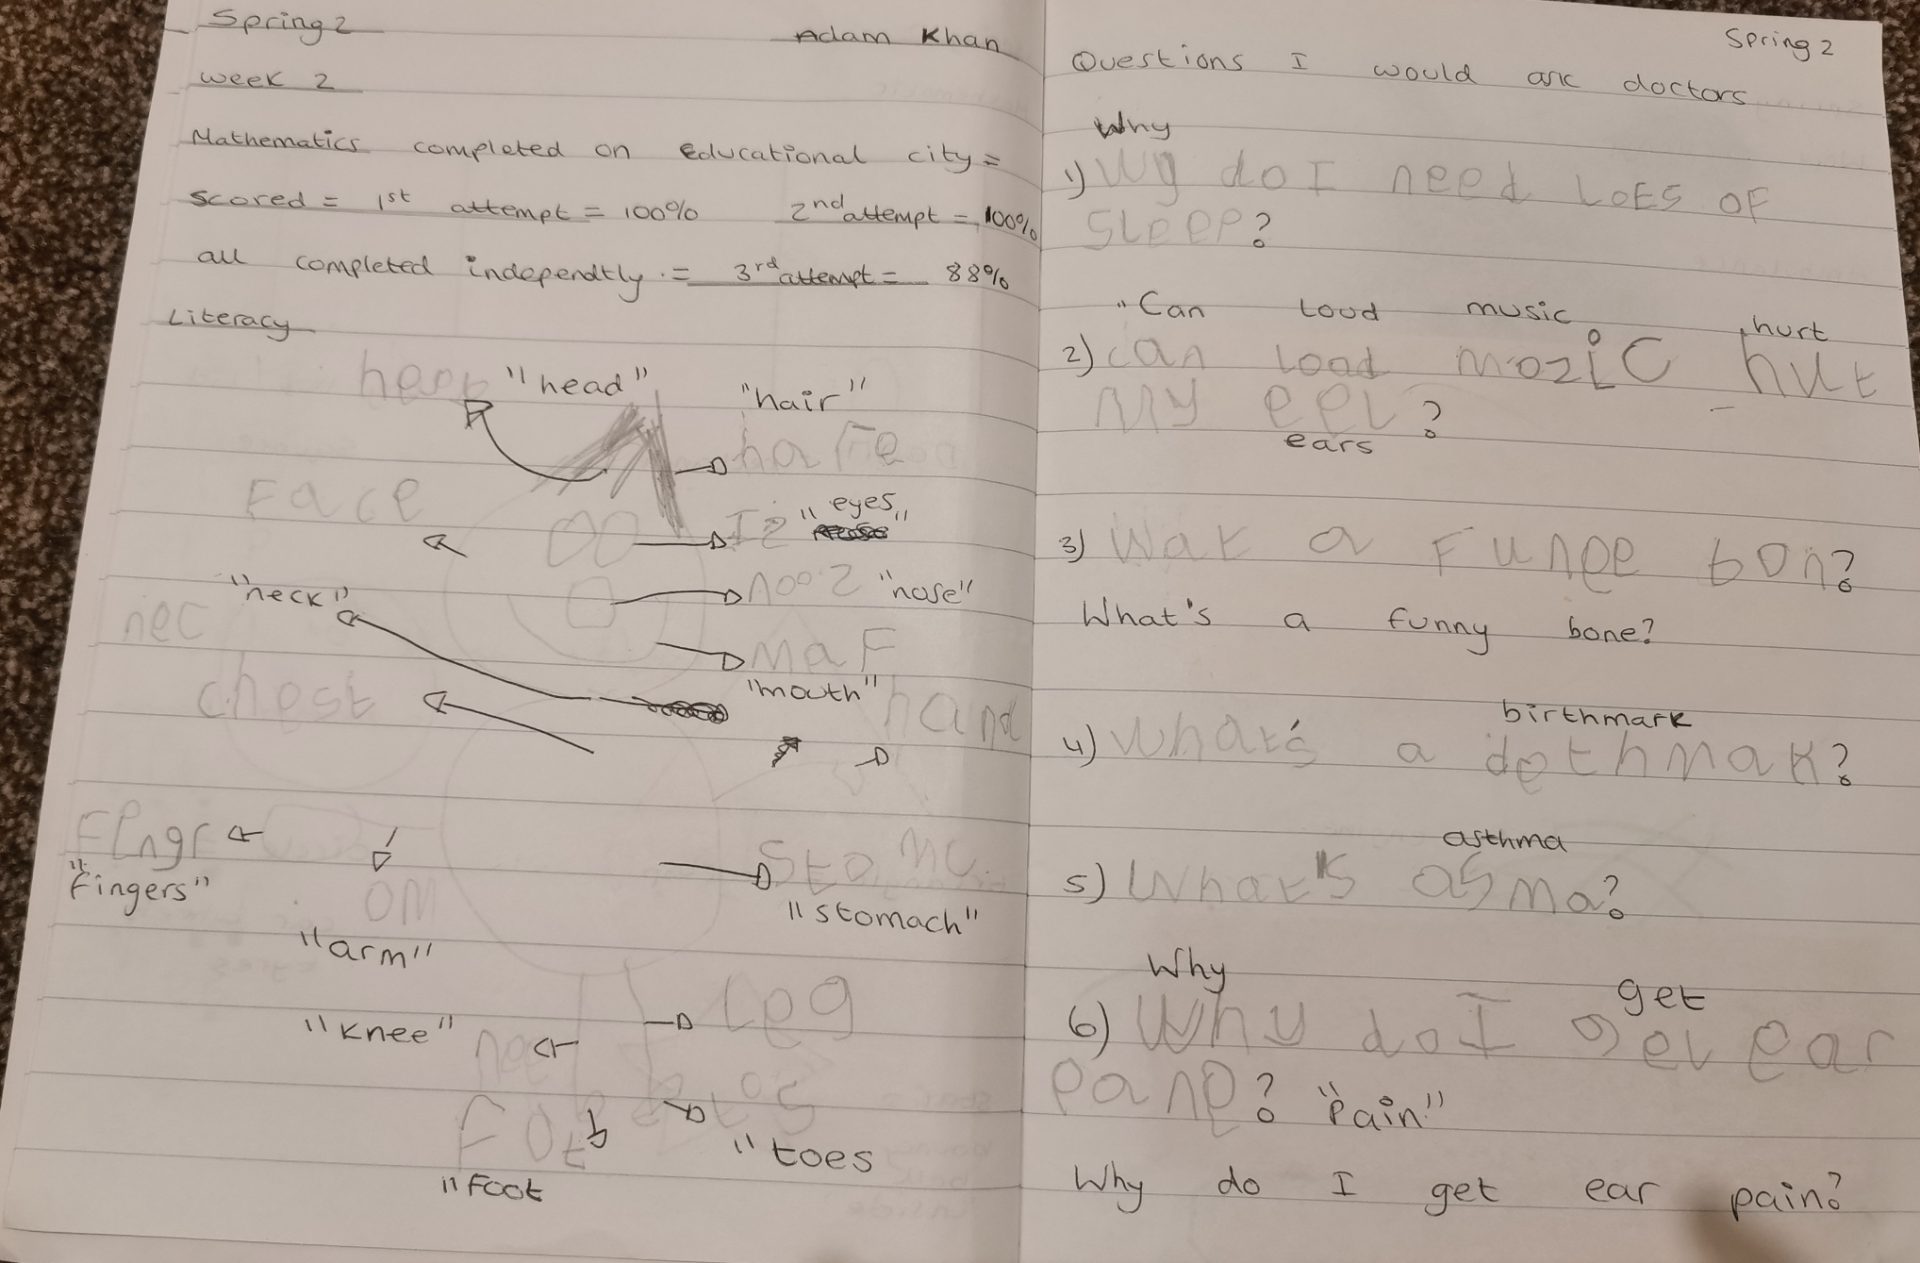 Spring 2
Adam Khan
week 2
Mathematics completed on Educational city =
scored = 1st attempt = 100% 2nd attempt = 100%
all completed independtly . = 3rd attempt = 88%
Literacy
"head"
"hair"
Face
"eyes"
Iz
"neck"
nooz "nose"
nec
maF
"mouth"
chest
hand
FLngr
"Fingers"
Stomc
"stomach"
om
"arm"
Leg
"knee"
nee
tos
Fot
"toes
"Foot
Spring 2
Questions I would ask doctors
Why
1) Wy do I need Lots OF
SLeep?
"Can loud music hurt
2) can Load mozic hut
My eer?
ears
3) Wat a Funee bon?
What's a funny bone?
birthmark
4) What's a dethmak?
asthma
5) What's asma?
Why get
6) Why do I get ear
pane? "Pain"
Why do I get ear pain?